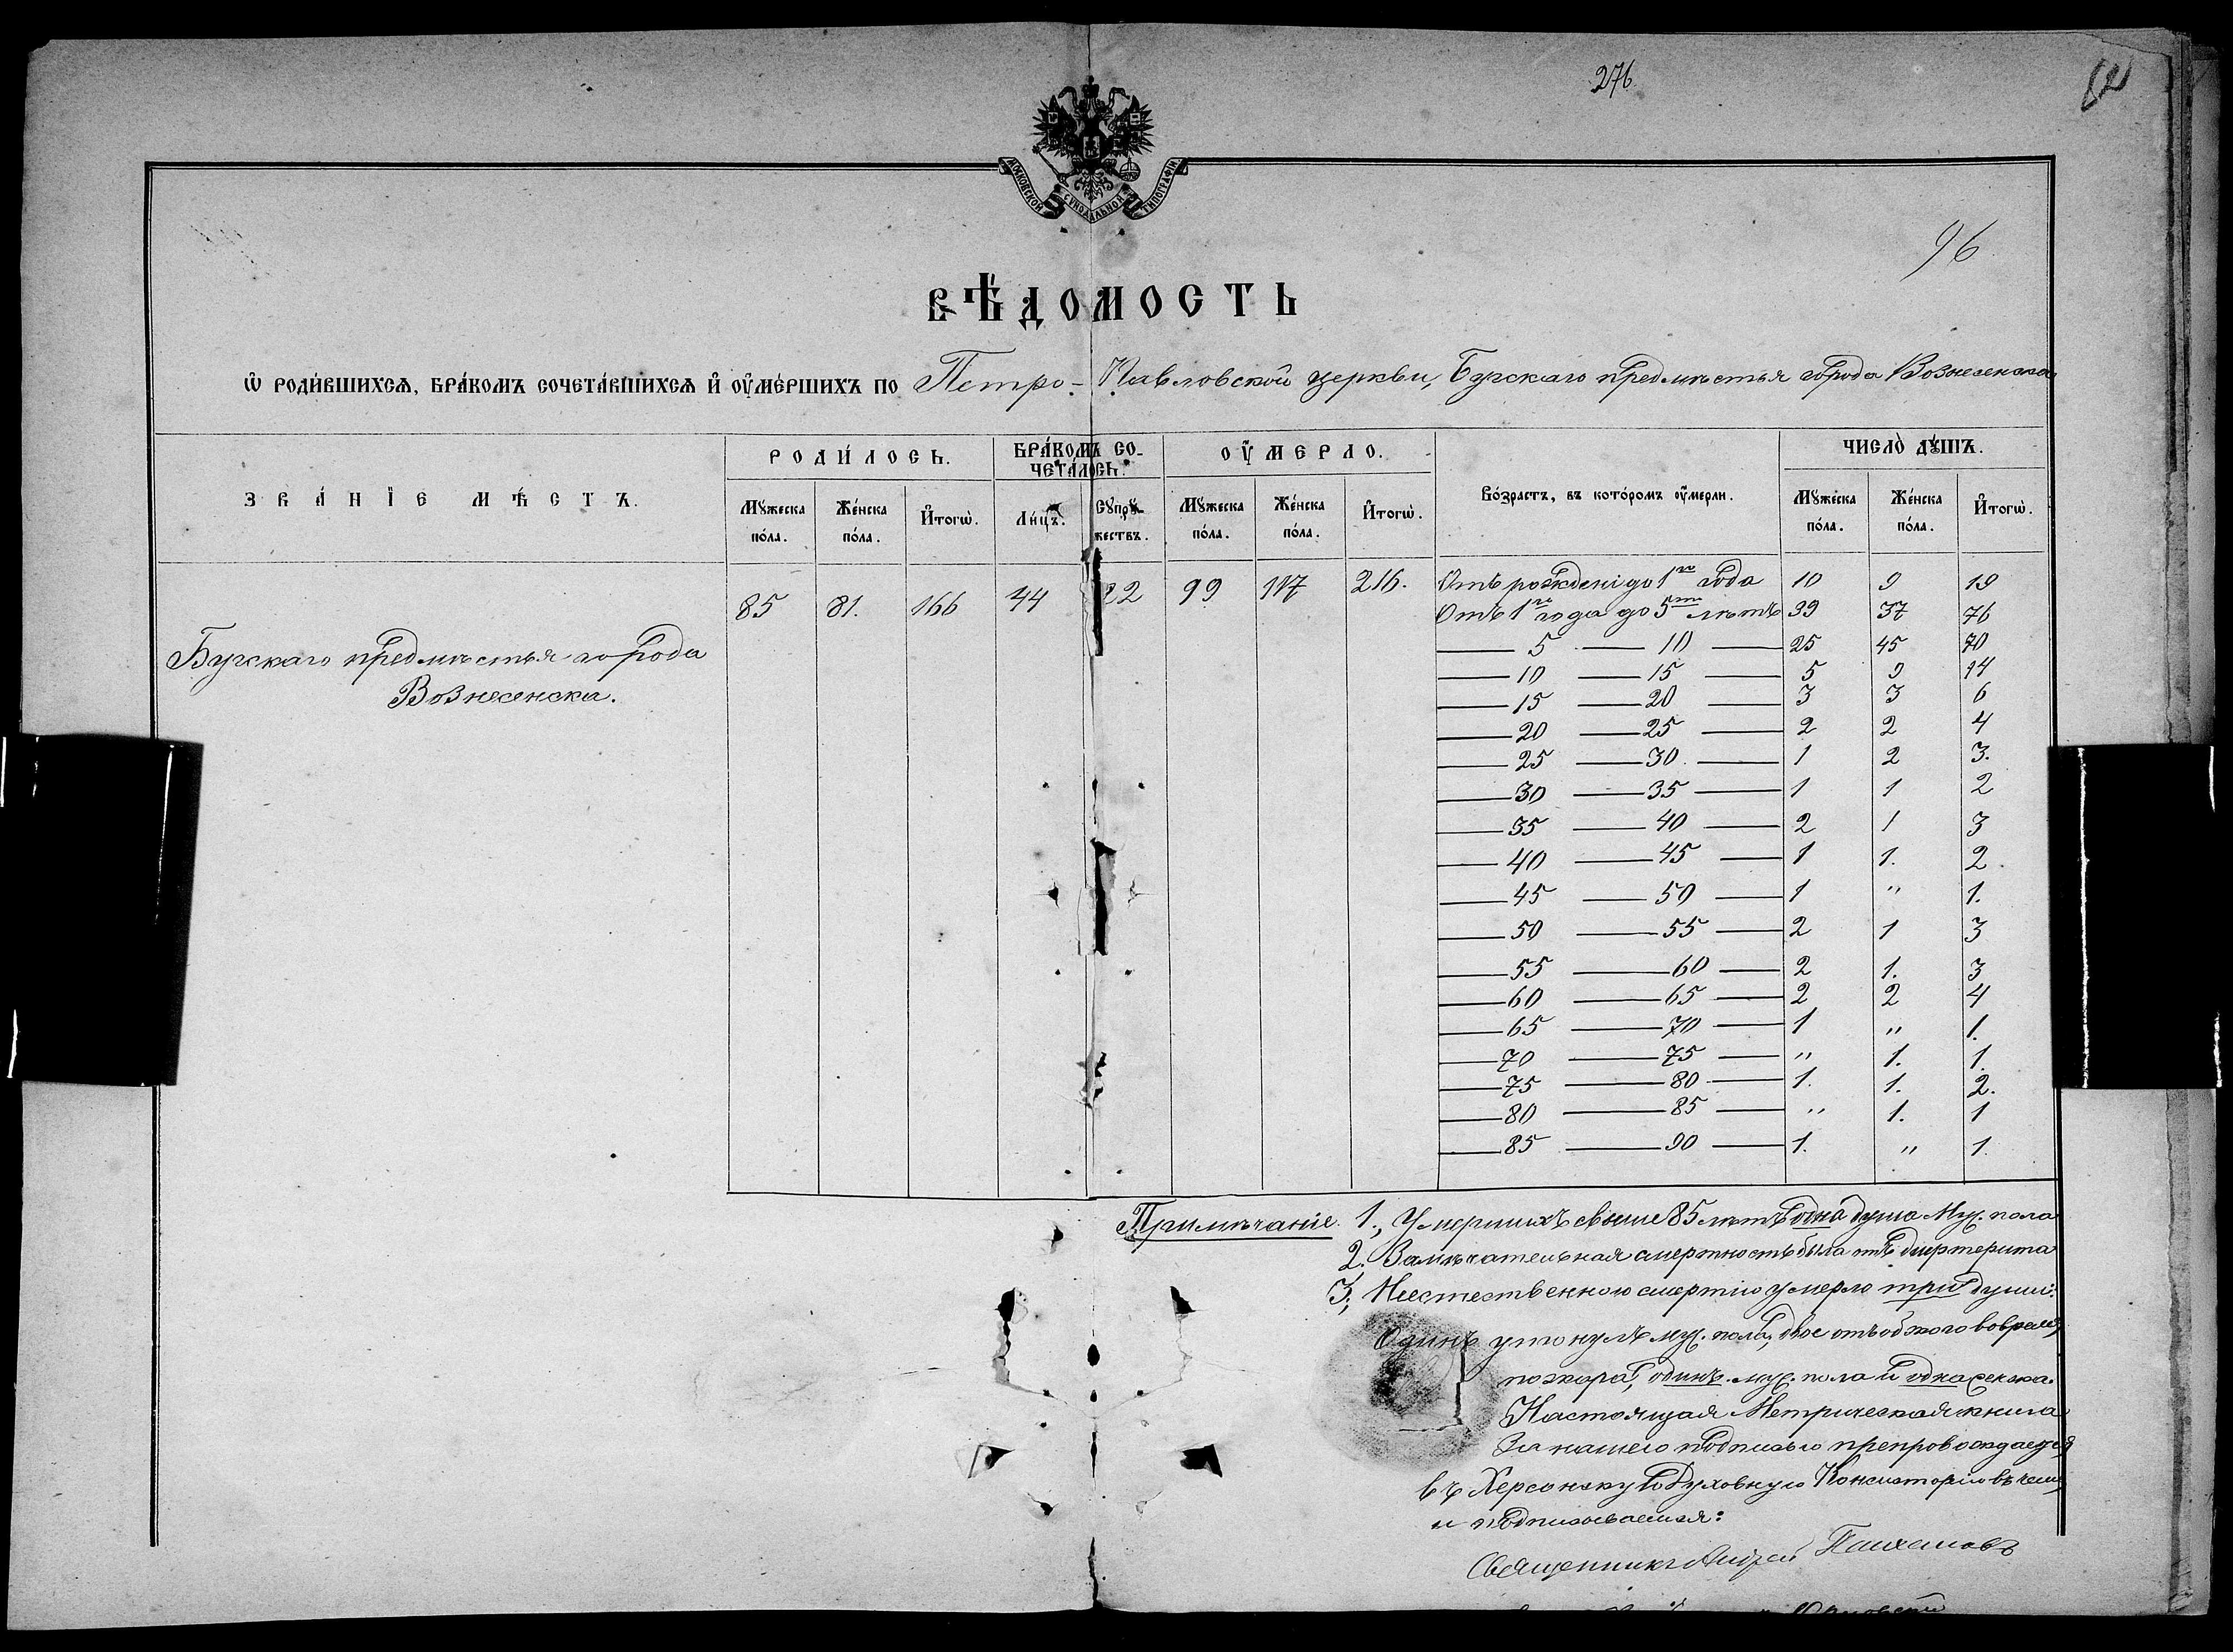 276
96
МОСКОВСКОЙ СУНОДАЛЬНОЙ ТИПОГРАФІИ
ВѢДОМОСТЬ
Ѡ РОДИ́ВШИХСѦ, БРА́КОМЪ СОЧЕТА́ВШИХСѦ И҆ ОУ҆МЕ́РШИХЪ ПО Петро-Павловской церкви, Бугскаго предмѣстья города Вознесенска
ЗВА́НЇЕ МѢ́СТЪ.
РОДИ́ЛОСЬ.
БРА́КОМЪ СО-
ЧЕТА́ЛОСЬ.
ОУ҆МЕРЛО.
Во́зрастъ, въ кото́ромъ оу҆мерли.
ЧИСЛО̀ ДꙊ́ШЪ.
Мꙋ́жеска по́ла. Же́нска по́ла. И҆тогѡ̀. Ли́цъ. Сꙋпрꙋ́жествъ. Мꙋ́жеска по́ла. Же́нска по́ла. И҆тогѡ̀. Мꙋ́жеска по́ла. Же́нска по́ла. И҆тогѡ̀.
Бугскаго предмѣстья города
Вознесенска.
85 81. 166 44 22 99 117 216.
Отъ рожденi до 1го года 10 9 19
Отъ 1го года до 5ти лѣтъ 39 37 76
5 — 10 — 25 45 70
10 — 15 — 5 9 14
15 — 20 — 3 3 6
20 — 25 — 2 2 4
25 — 30. — 1 2 3.
30 — 35 — 1 1 2
35 — 40 — 2 1 3
40 — 45 — 1 1. 2
45 — 50 — 1 " 1.
50 — 55 — 2 1 3
55 — 60 — 2 1. 3
60 — 65 — 2 2 4
65 — 70 — 1 " 1.
70 — 75 — " 1. 1.
75 — 80 — 1. 1. 2.
80 — 85 — " 1. 1
85 — 90 — 1. " 1.
Примѣчаніе. 1., Умершихъ свыше 85 лѣтъ одна душа муж. пола
2. Замѣчательная смертность была отъ дифтерита
3., Неестественною смертію умерло три души:
Одинъ утонулъ муж. пола, двое отъ обжога во время
пожара, одинъ муж. пола и одна женска.
Настоящая Метрическая книга
За нашего подписью препровождается
въ Херсонскую Духовную Консисторію въ чемъ
и подписываемся:
Священникъ Андрей